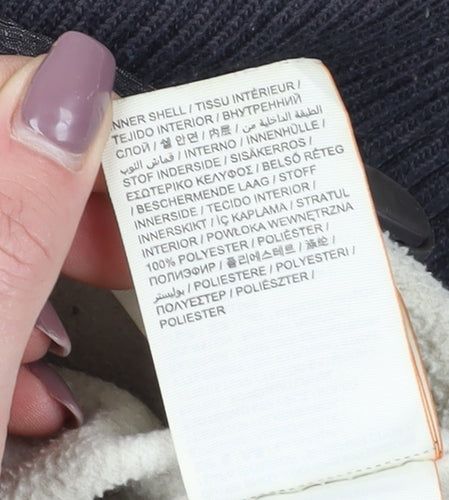 INNER SHELL / TISSU INTÉRIEUR /
TEJIDO INTERIOR / ВНУТРЕННИЙ
СЛОЙ / 쉘 안면 / 内里 / الطبقة الداخلية من
قماش الثوب / INTERNO / INNENHÜLLE /
STOF INDERSIDE / SISÄKERROS /
ΕΣΩΤΕΡΙΚΟ ΚΕΛΥΦΟΣ / BELSŐ RÉTEG
/ BESCHERMENDE LAAG / STOFF
INNERSIDE / TECIDO INTERIOR /
INNERSKIKT / İÇ KAPLAMA / STRATUL
INTERIOR / POWŁOKA WEWNĘTRZNA
100% POLYESTER / POLIÉSTER /
ПОЛИЭФИР / 폴리에스테르 / 涤纶 /
بوليستر / POLIESTERE / POLYESTERI /
ΠΟΛΥΕΣΤΕΡ / POLIÉSZTER /
POLIESTER